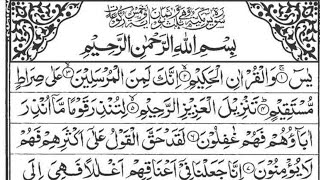 بِسْمِ اللهِ الرَّحْمٰنِ الرَّحِيْمِ
يٰسٓ ۚ وَالْقُرْاٰنِ الْحَكِيْمِ ۙ اِنَّكَ لَمِنَ الْمُرْسَلِيْنَ ۙ عَلٰى صِرَاطٍ
مُّسْتَقِيْمٍ ؕ تَنْزِيْلَ الْعَزِيْزِ الرَّحِيْمِ ۙ لِتُنْذِرَ قَوْمًا مَّاۤ اُنْذِرَ
اٰبَآؤُهُمْ فَهُمْ غٰفِلُوْنَ لَقَدْ حَقَّ الْقَوْلُ عَلٰۤى اَكْثَرِهِمْ فَهُمْ
لَا يُؤْمِنُوْنَ اِنَّا جَعَلْنَا فِيْۤ اَعْنَاقِهِمْ اَغْلٰلًا فَهِيَ اِلَى